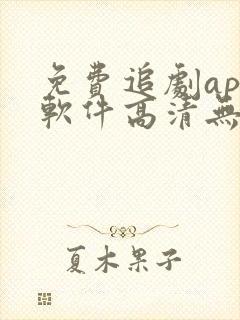 免費追劇ap
軟件高清無
夏木果子